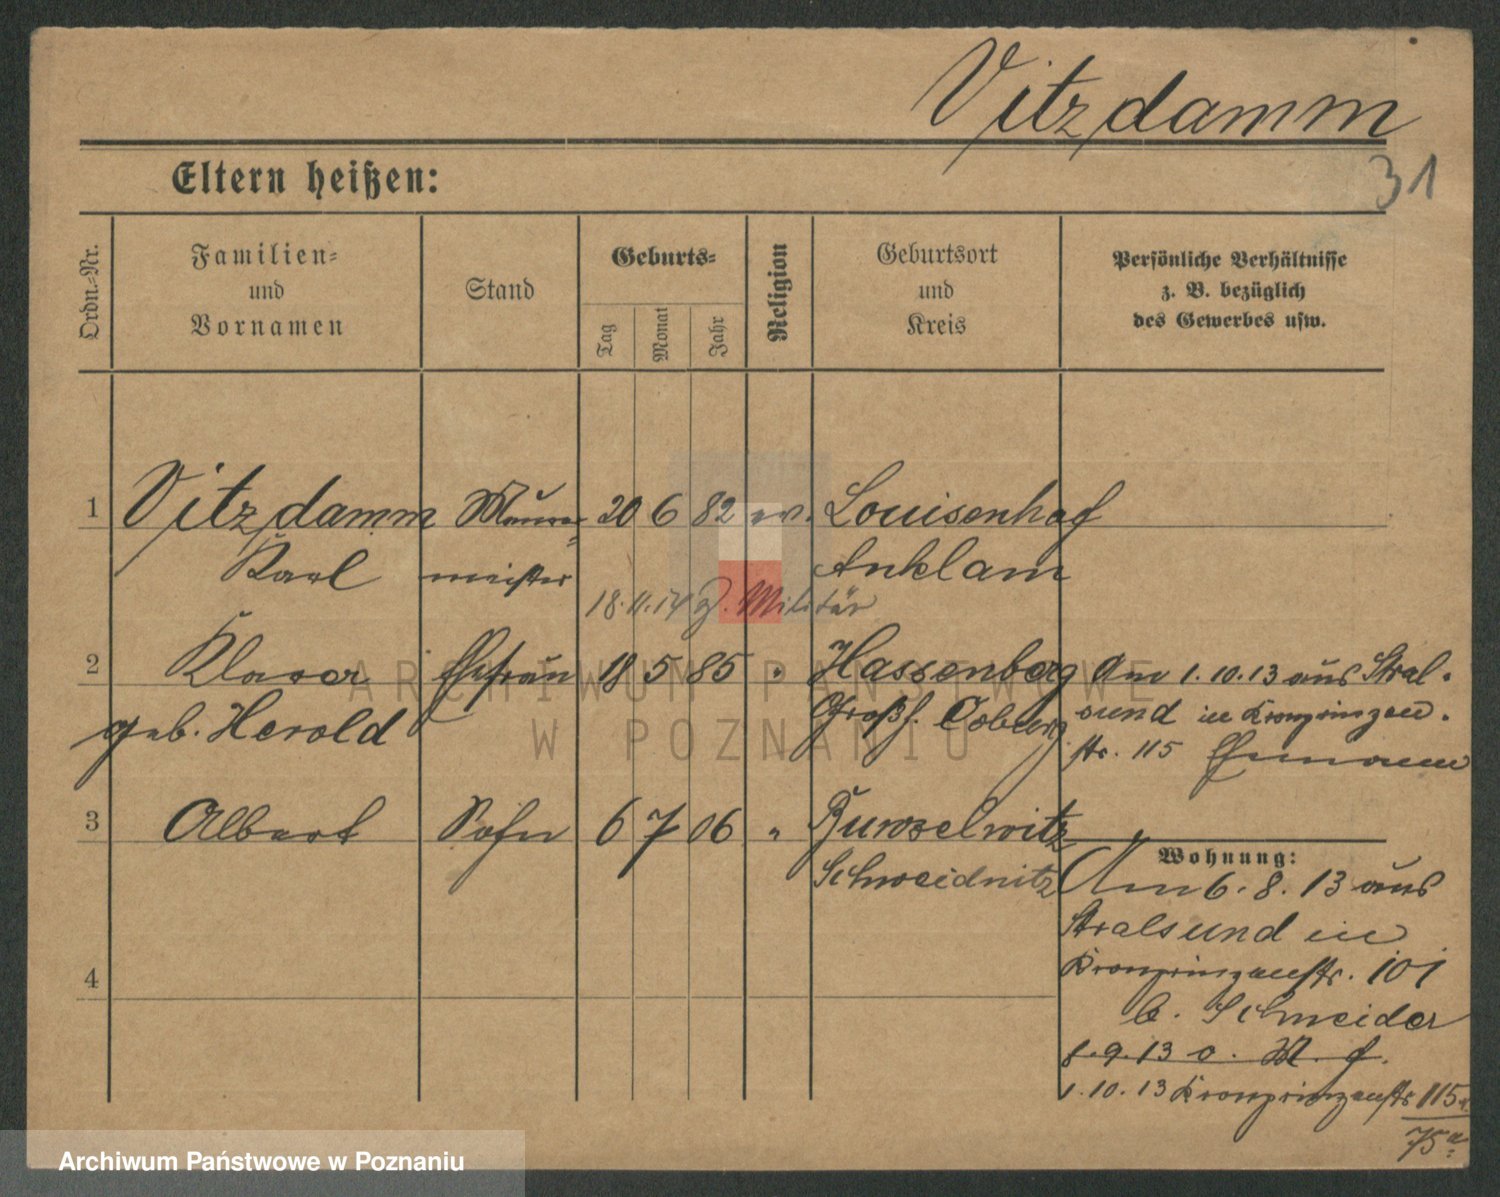 Vitzdamm
31
Eltern heißen:
Ordn.-Nr.
Familien-
und
Vornamen
Stand
Geburts-
Tag
Monat
Jahr
Religion
Geburtsort
und
Kreis
Persönliche Verhältnisse
z. B. bezüglich
des Gewerbes usw.
1 Vitzdamm Maurer= 20 6 82 ev. Louisenhof
Karl meister Anklam
18.11.14 z. Militär
2 Klara Ehefrau 18 5 85 " Hassenberg Am 1.10.13 aus Stral-
geb. Herold Großh. Coburg sund in Kronprinzen-
str. 115 Ehemann
3 Albert Sohn 6 7 06 " Bunzelwitz
Schweidnitz
Wohnung:
Am 6.8.13 aus
Stralsund in
Kronprinzenstr. 101
b. Schneider
8.9.13 o. M. f.
1.10.13 Kronprinzenstr 115
75a
4
ARCHIWUM PAŃSTWOWE
W POZNANIU
Archiwum Państwowe w Poznaniu